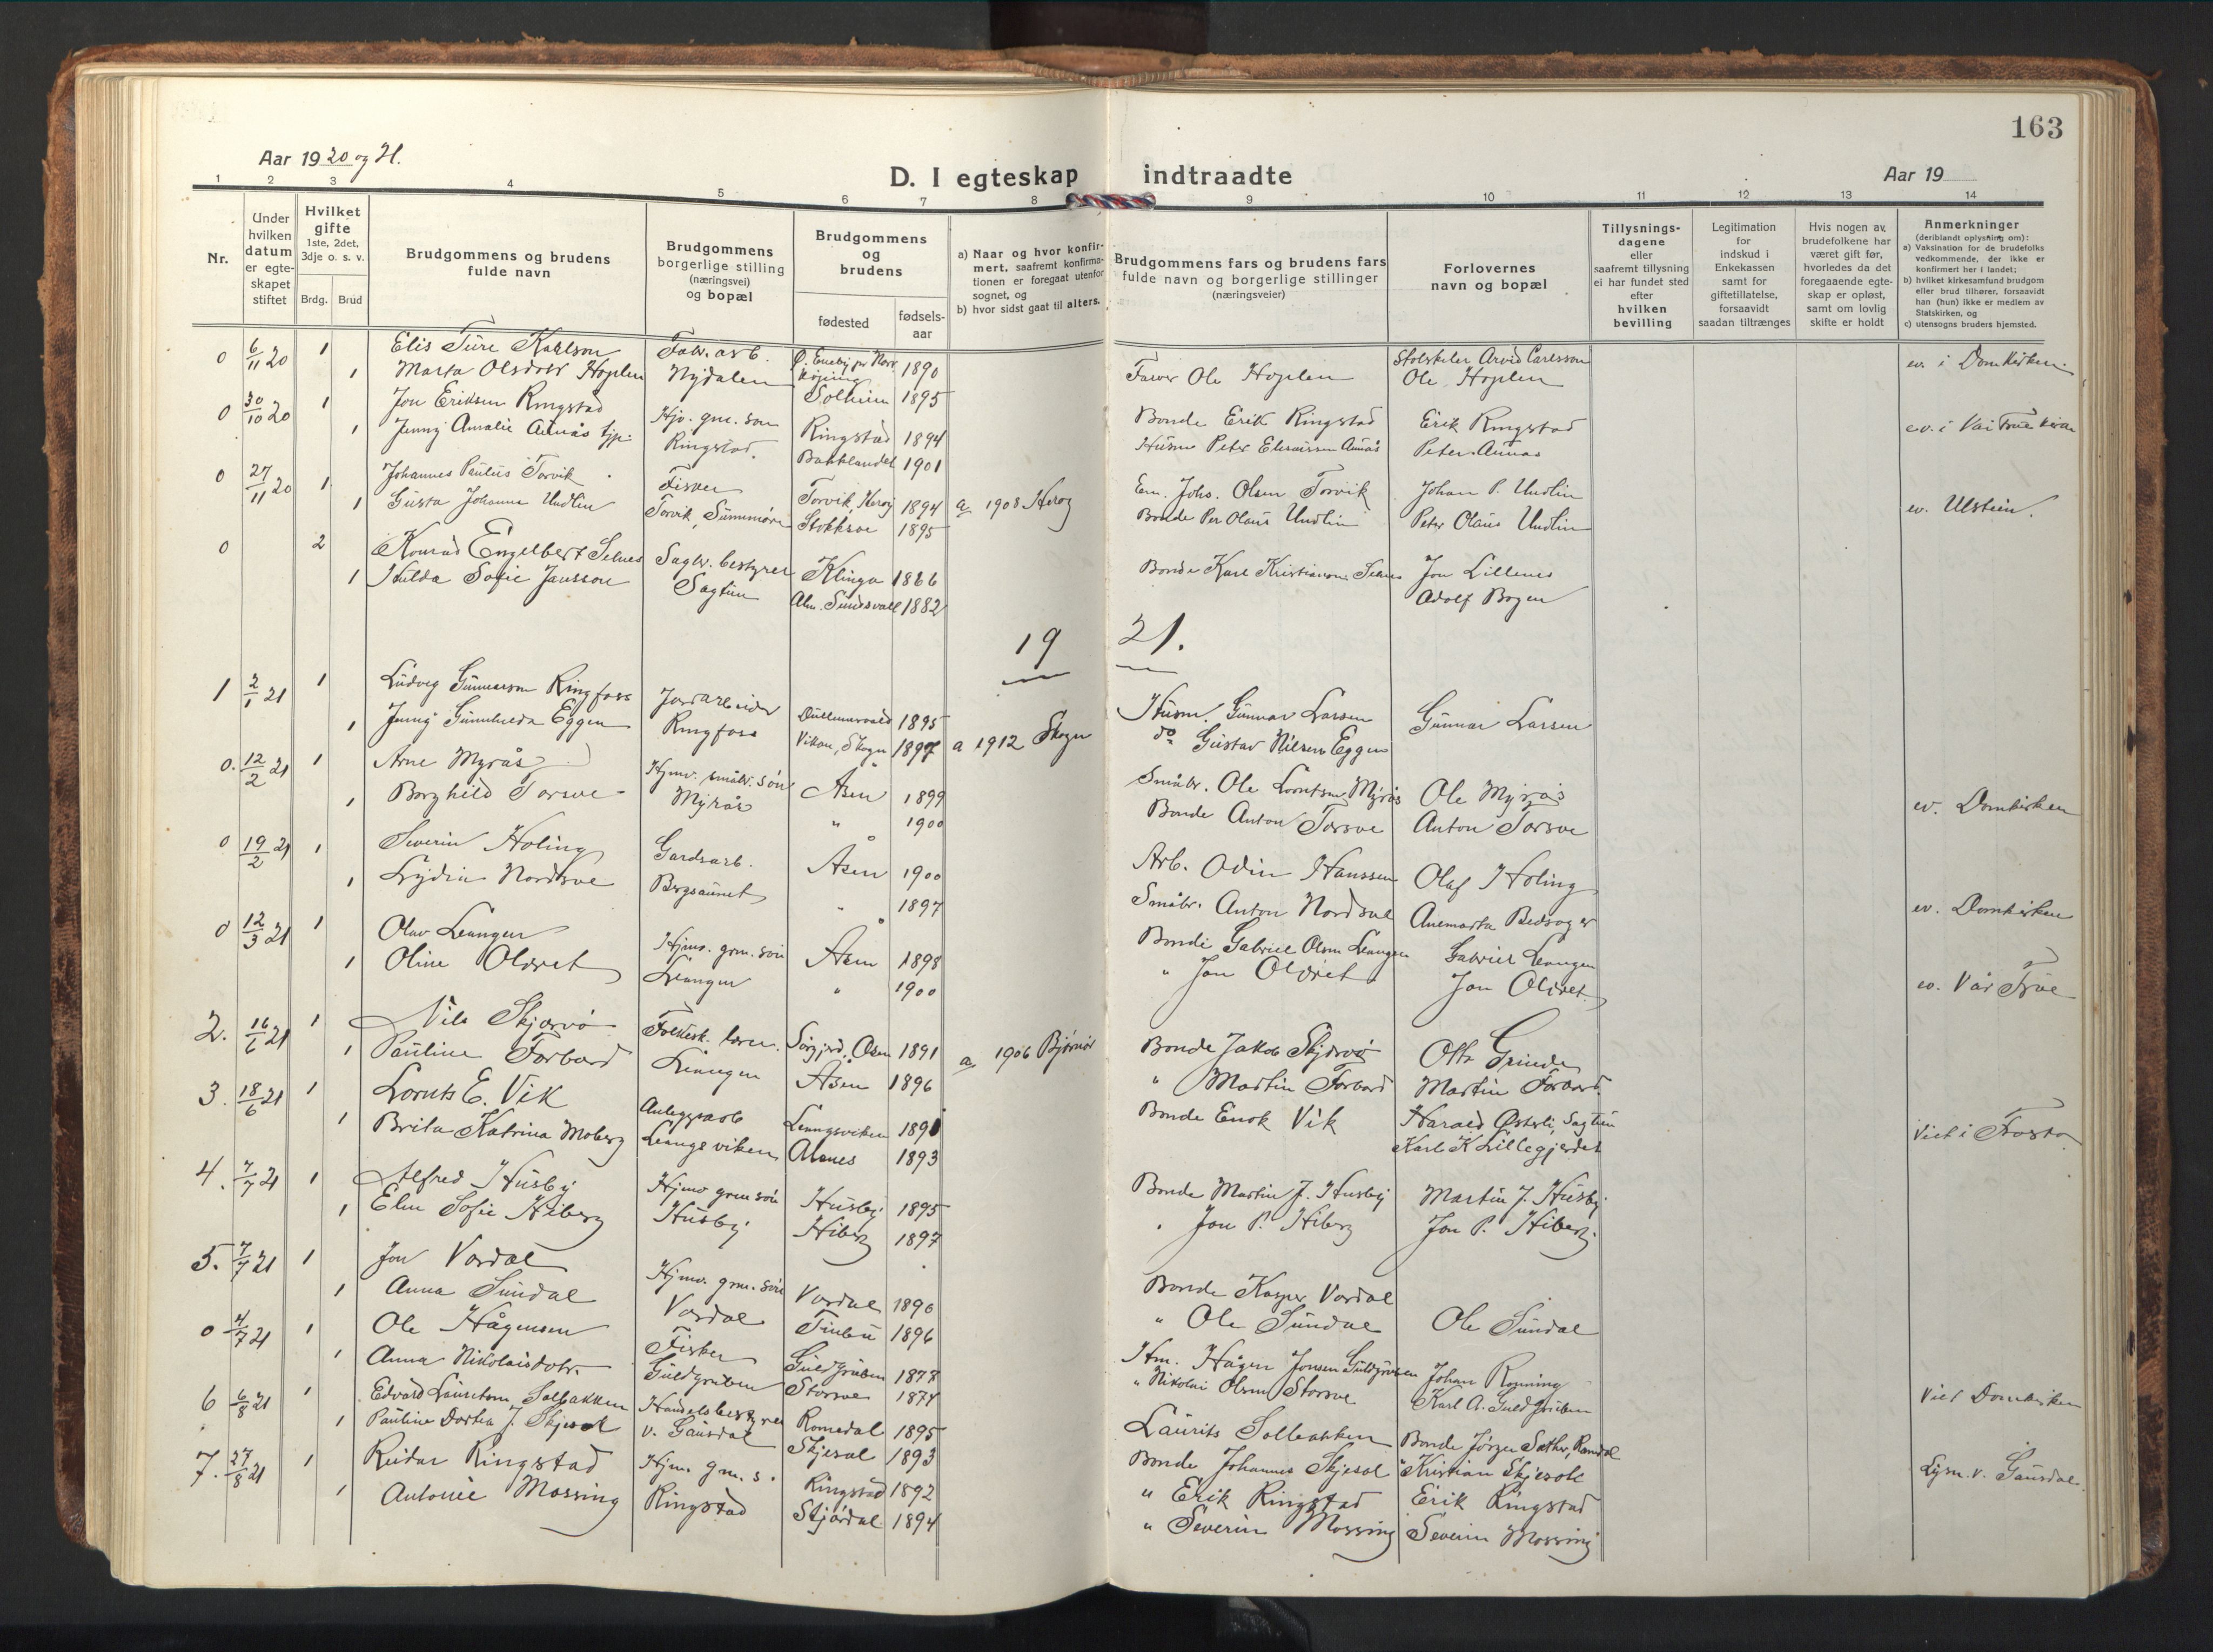 163
Aar 1920 og 21.
D. I egteskap indtraadte
Aar 19
1 2 3 4 5 6 7 8 9 10 11 12 13 14
Nr.
Under hvilken datum er egteskapet stiftet
Hvilket gifte 1ste, 2det, 3dje o. s. v.
Brdg. Brud
Brudgommens og brudens fulde navn
Brudgommens borgerlige stilling (næringsvei) og bopæl
Brudgommens og brudens
fødested
fødselsaar
a) Naar og hvor konfirmert, saafremt konfirmationen er foregaat utenfor sognet, og
b) hvor sidst gaat til alters.
Brudgommens fars og brudens fars fulde navn og borgerlige stillinger (næringsveier)
Forlovernes navn og bopæl
Tillysningsdagene eller saafremt tillysning ei har fundet sted efter hvilken bevilling
Legitimation for indskud i Enkekassen samt for giftetillatelse, forsaavidt saadan tiltrænges
Hvis nogen av brudefolkene har været gift før, hvorledes da det foregaaende egteskap er opløst, samt om lovlig skifte er holdt
Anmerkninger
(deriblandt oplysning om):
a) Vaksination for de brudefolks vedkommende, der ikke er konfirmert her i landet;
b) hvilket kirkesamfund brudgom eller brud tilhører, forsaavidt han (hun) ikke er medlem av Statskirken, og
c) utensogns bruders hjemsted.
0 6/11 20 1 Elis Ture Karlson Fabr. arb. 1890 Arvid Carlsson ev. i Domkirken.
1 Marta Olsdatr Hoplen Nydalen Solheim 1895 Farver Ole Hoplen Ole Hoplen
0 30/10 20 1 Jon Eriksen Ringstad Hjv. gm. søn Ringstad 1894 Bonde Erik Ringstad Erik Ringstad ev. i Vår Frue
1 Jenny Amalie Aunås Ringstad. Bakklandet 1901 Husm Peter Aunås Peter Aunås
0 27/11 20 1 Johannes Paulus Torvik Fisker Torvik, Herøy 1894 a 1908 Herøy Em. Johs. Olsen Torvik Johan P. Undlin ev. Ulstein.
1 Gusta Johanna Undlin Torvik, Sunnmøre Stokksoe 1895 Bonde Per Olaus Undlin Peter Olaus Undlin
0 2 Konrad Engelbert Selnes Sagbr. bestyrer Klinga 1886 Bonde Karl Kristianson Selnes Jon Lillenes
1 Hulda Sofie Jansson Sagtun Aln. Sundsvall 1882 Adolf Bogen
19 21.
1 2/1 21 1 Ludvig Gunnarson Ringfoss Jordarbeider 1895 Husm. Gunnar Larsen Gunnar Larsen
1 Jenny Gunhilda Eggen Ringfoss Vikan, Skogn 1897 a 1912 Skogn do Gustav Nilsen Eggen
0. 12/2 21 1 Arne Myrås Hjmv. småbr. søn Åsen 1899 Småbr. Ole Lorntsen Myrås Ole Myrås ev. Domkirken
1 Borghild Torsve Myrås " 1900 Bonde Anton Torsve Anton Torsve
0 19/2 21 1 Severin Holing Gardsarb. Åsen 1900 Arb. Odin Hanssen Olaf Holing ev. Domkirken
1 Lydia Nordsve Bergsaunet " 1897 Småbr. Anton Nordsve Anemarta
0 12/3 21 1 Olav Leangen Hjmv. grm. søn Åsen 1898 Bonde Gabriel Olsen Leangen Gabriel Leangen ev. Vår Frue
1 Oline Oldret Leangen " 1900 " Jon Oldret Jon Oldret
2. 16/6 21 1 Nils Skjærvø Folkesk. lærer. 1891 a 1906 Bjørnør Bonde Jakob Skjærvø Otto Grinde
1 Pauline Forbord Leangen Åsen 1896 " Martin Forbord Martin Forbord.
3. 18/6 21 1 Lornts E. Vik Anleggsarb Leangsviken 1891 Bonde Enok Vik Harald Østerli, Sagtun Viet i Frosta
1 Brita Katrina Moberg Leangsviken Alsnes 1893 Karl K Lillegjerdet
4. 7/7 21 1 Alfred Husby Hjmv grm søn Husby 1895 Bonde Martin J. Husby Martin J. Husby
1 Elen Sofie Hiberg Husby Hiberg 1897 " Jon P. Hiberg Jon P. Hiberg.
5. 7/7 21 1 Jon Vordal Hjmv. grm. søn Vordal 1890 Bonde Kasper Vordal
1 Anna Sundal Vordal 1896 " Ole Sundal Ole Sundal
0 4/7 21 1 Ole Hågensen Fisker Guldgruben 1878 Hm. Hågen Jonsen Guldgruben Johan Rønning Viet Domkirken
1 Anna Nikolaisdotr. Guldgruben Storsve 1874 " Nikolai Olsen Storsve Karl A. Guldgruben
6 6/8 21 1 Edvard Lauritsen Solbakken Handelsbestyrer Romedal 1895 Laurits Solbakken Bonde Jørgen Sæther, Lysn. v. Gausdal
1 Pauline Dortea J. Skjesol v. Gausdal Skjesol 1893 Bonde Johannes Skjesol " Kristian Skjesol
7. 27/8 21 1 Reidar Ringstad Hjm. gm. s. Ringstad 1892 " Erik Ringstad Erik Ringstad
1 Antonie Mossing Ringstad Stjørdal 1894 " Severin Mossing Severin Mossing